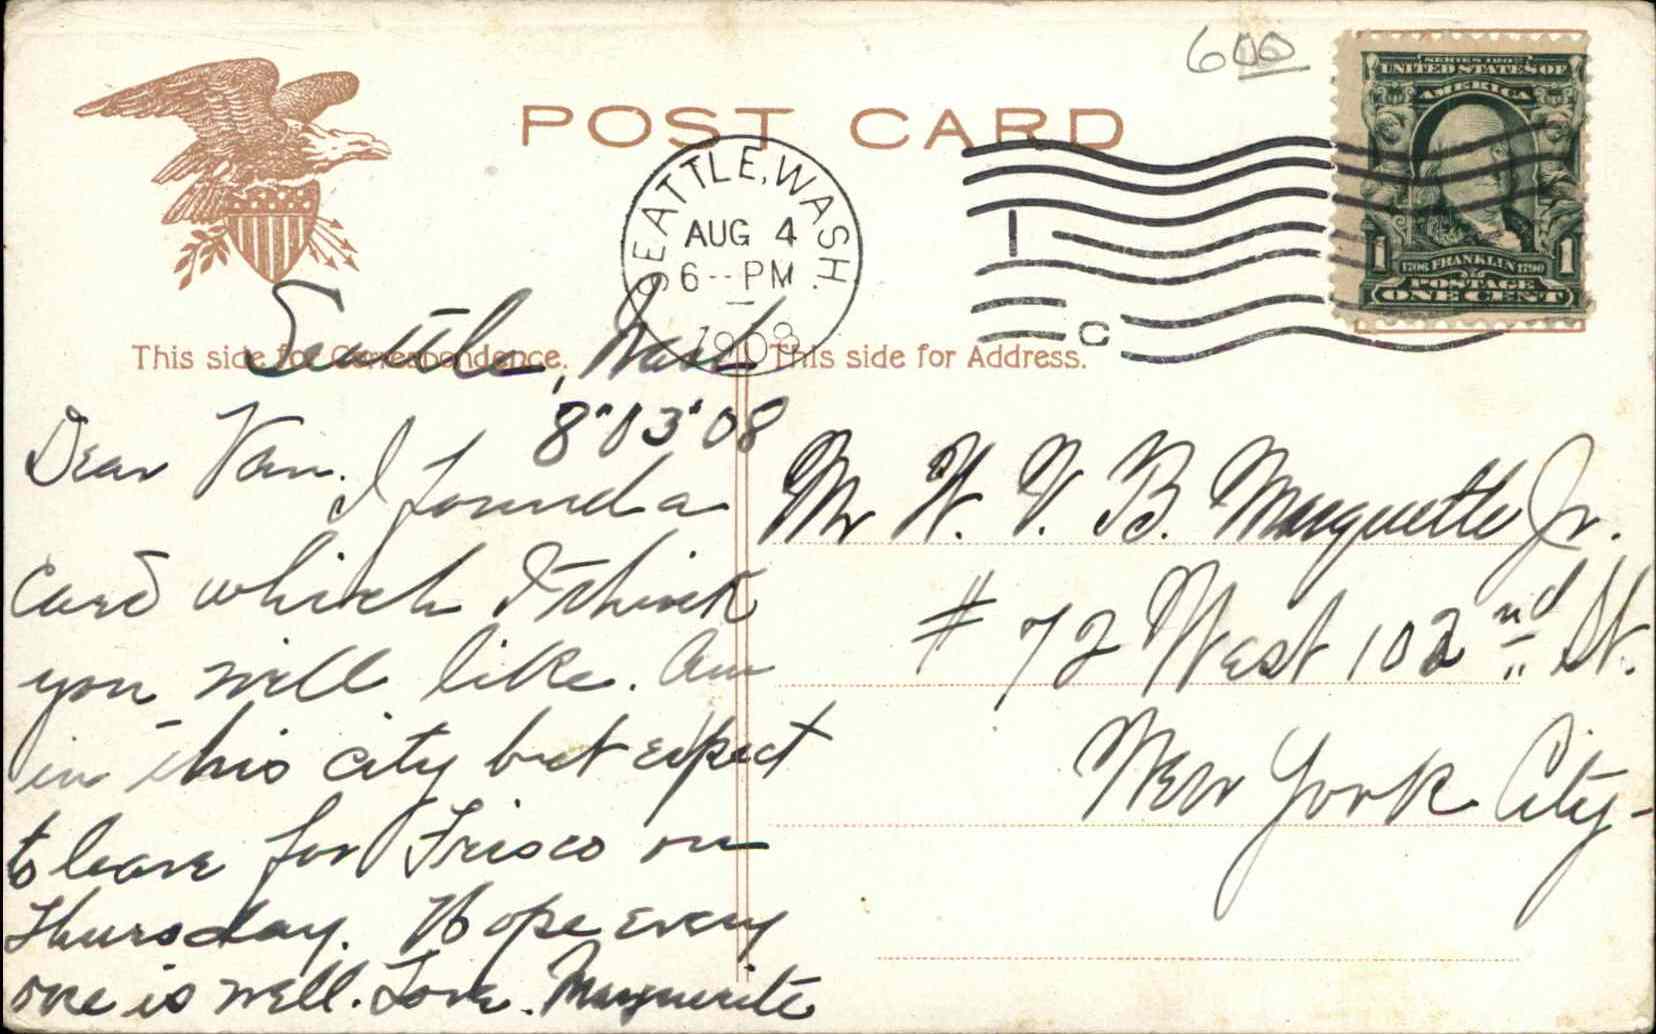 600
POST CARD
SERIES 1902
UNITED STATES OF
AMERICA
1 1
1706 FRANKLIN 1790
POSTAGE
ONE CENT
SEATTLE, WASH.
AUG 4
6--PM
1908
1
C
This side for Correspondence.
This side for Address.
Seattle, Wash
8"03'08
Dear Van. I found a
Card which I think
you will like. Am
in this city but expect
to leave for Frisco on
Thursday. Hope every
one is well. Love. Marguerite
Mr W. V. B. Marquette Jr.
# 72 West 102nd St.
New York City-